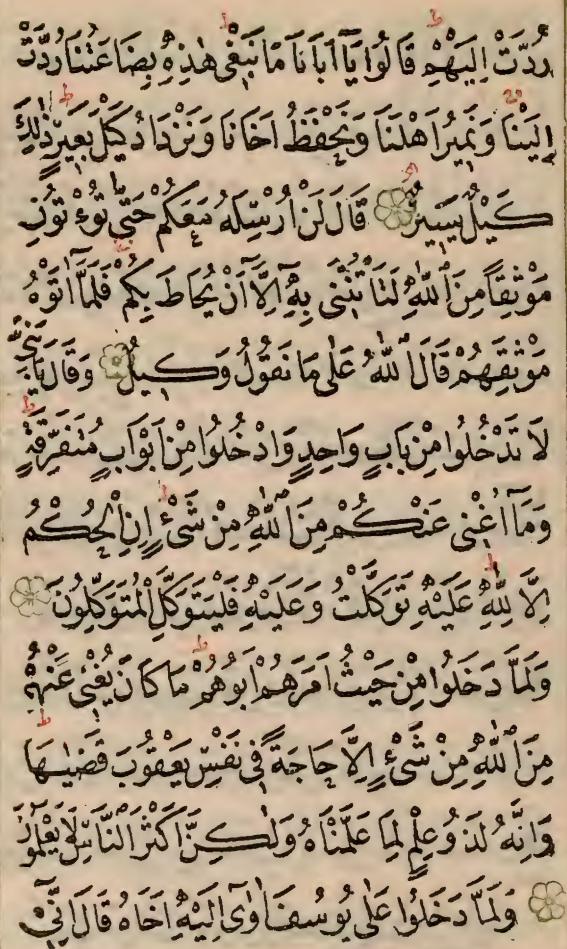 رُدَّتْ اِلَيْهِمْ ط قَالُوا يَآ اَبَانَا مَا نَبْغٖى ط هٰذِهٖ بِضَاعَتُنَا رُدَّتْ
اِلَيْنَا وَنَمٖيرُ اَهْلَنَا وَنَحْفَظُ اَخَانَا وَنَزْدَادُ كَيْلَ بَعٖيرٍ ط ذٰلِكَ
كَيْلٌ يَسٖيرٌ قَالَ لَنْ اُرْسِلَهُ مَعَكُمْ حَتّٰى تُؤْتُونِ
مَوْثِقًا مِنَ اللّٰهِ لَتَاْتُنَّنٖى بِهٖٓ اِلَّٓا اَنْ يُحَاطَ بِكُمْ فَلَمَّٓا اٰتَوْهُ
مَوْثِقَهُمْ قَالَ اللّٰهُ عَلٰى مَا نَقُولُ وَكٖيلٌ وَقَالَ يَا بَنِىَّ
لَا تَدْخُلُوا مِنْ بَابٍ وَاحِدٍ وَادْخُلُوا مِنْ اَبْوَابٍ مُتَفَرِّقَةٍ ط
وَمَٓا اُغْنٖى عَنْكُمْ مِنَ اللّٰهِ مِنْ شَىْءٍ ط اِنِ الْحُكْمُ
اِلَّا لِلّٰهِ ط عَلَيْهِ تَوَكَّلْتُ وَعَلَيْهِ فَلْيَتَوَكَّلِ الْمُتَوَكِّلُونَ
وَلَمَّا دَخَلُوا مِنْ حَيْثُ اَمَرَهُمْ اَبُوهُمْ ط مَا كَانَ يُغْنٖى عَنْهُمْ
مِنَ اللّٰهِ مِنْ شَىْءٍ اِلَّا حَاجَةً فٖى نَفْسِ يَعْقُوبَ قَضٰيهَا ط
وَاِنَّهُ لَذُو عِلْمٍ لِمَا عَلَّمْنَاهُ وَلٰكِنَّ اَكْثَرَ النَّاسِ لَا يَعْلَمُونَ
وَلَمَّا دَخَلُوا عَلٰى يُوسُفَ اٰوٰٓى اِلَيْهِ اَخَاهُ قَالَ اِنّٖٓى